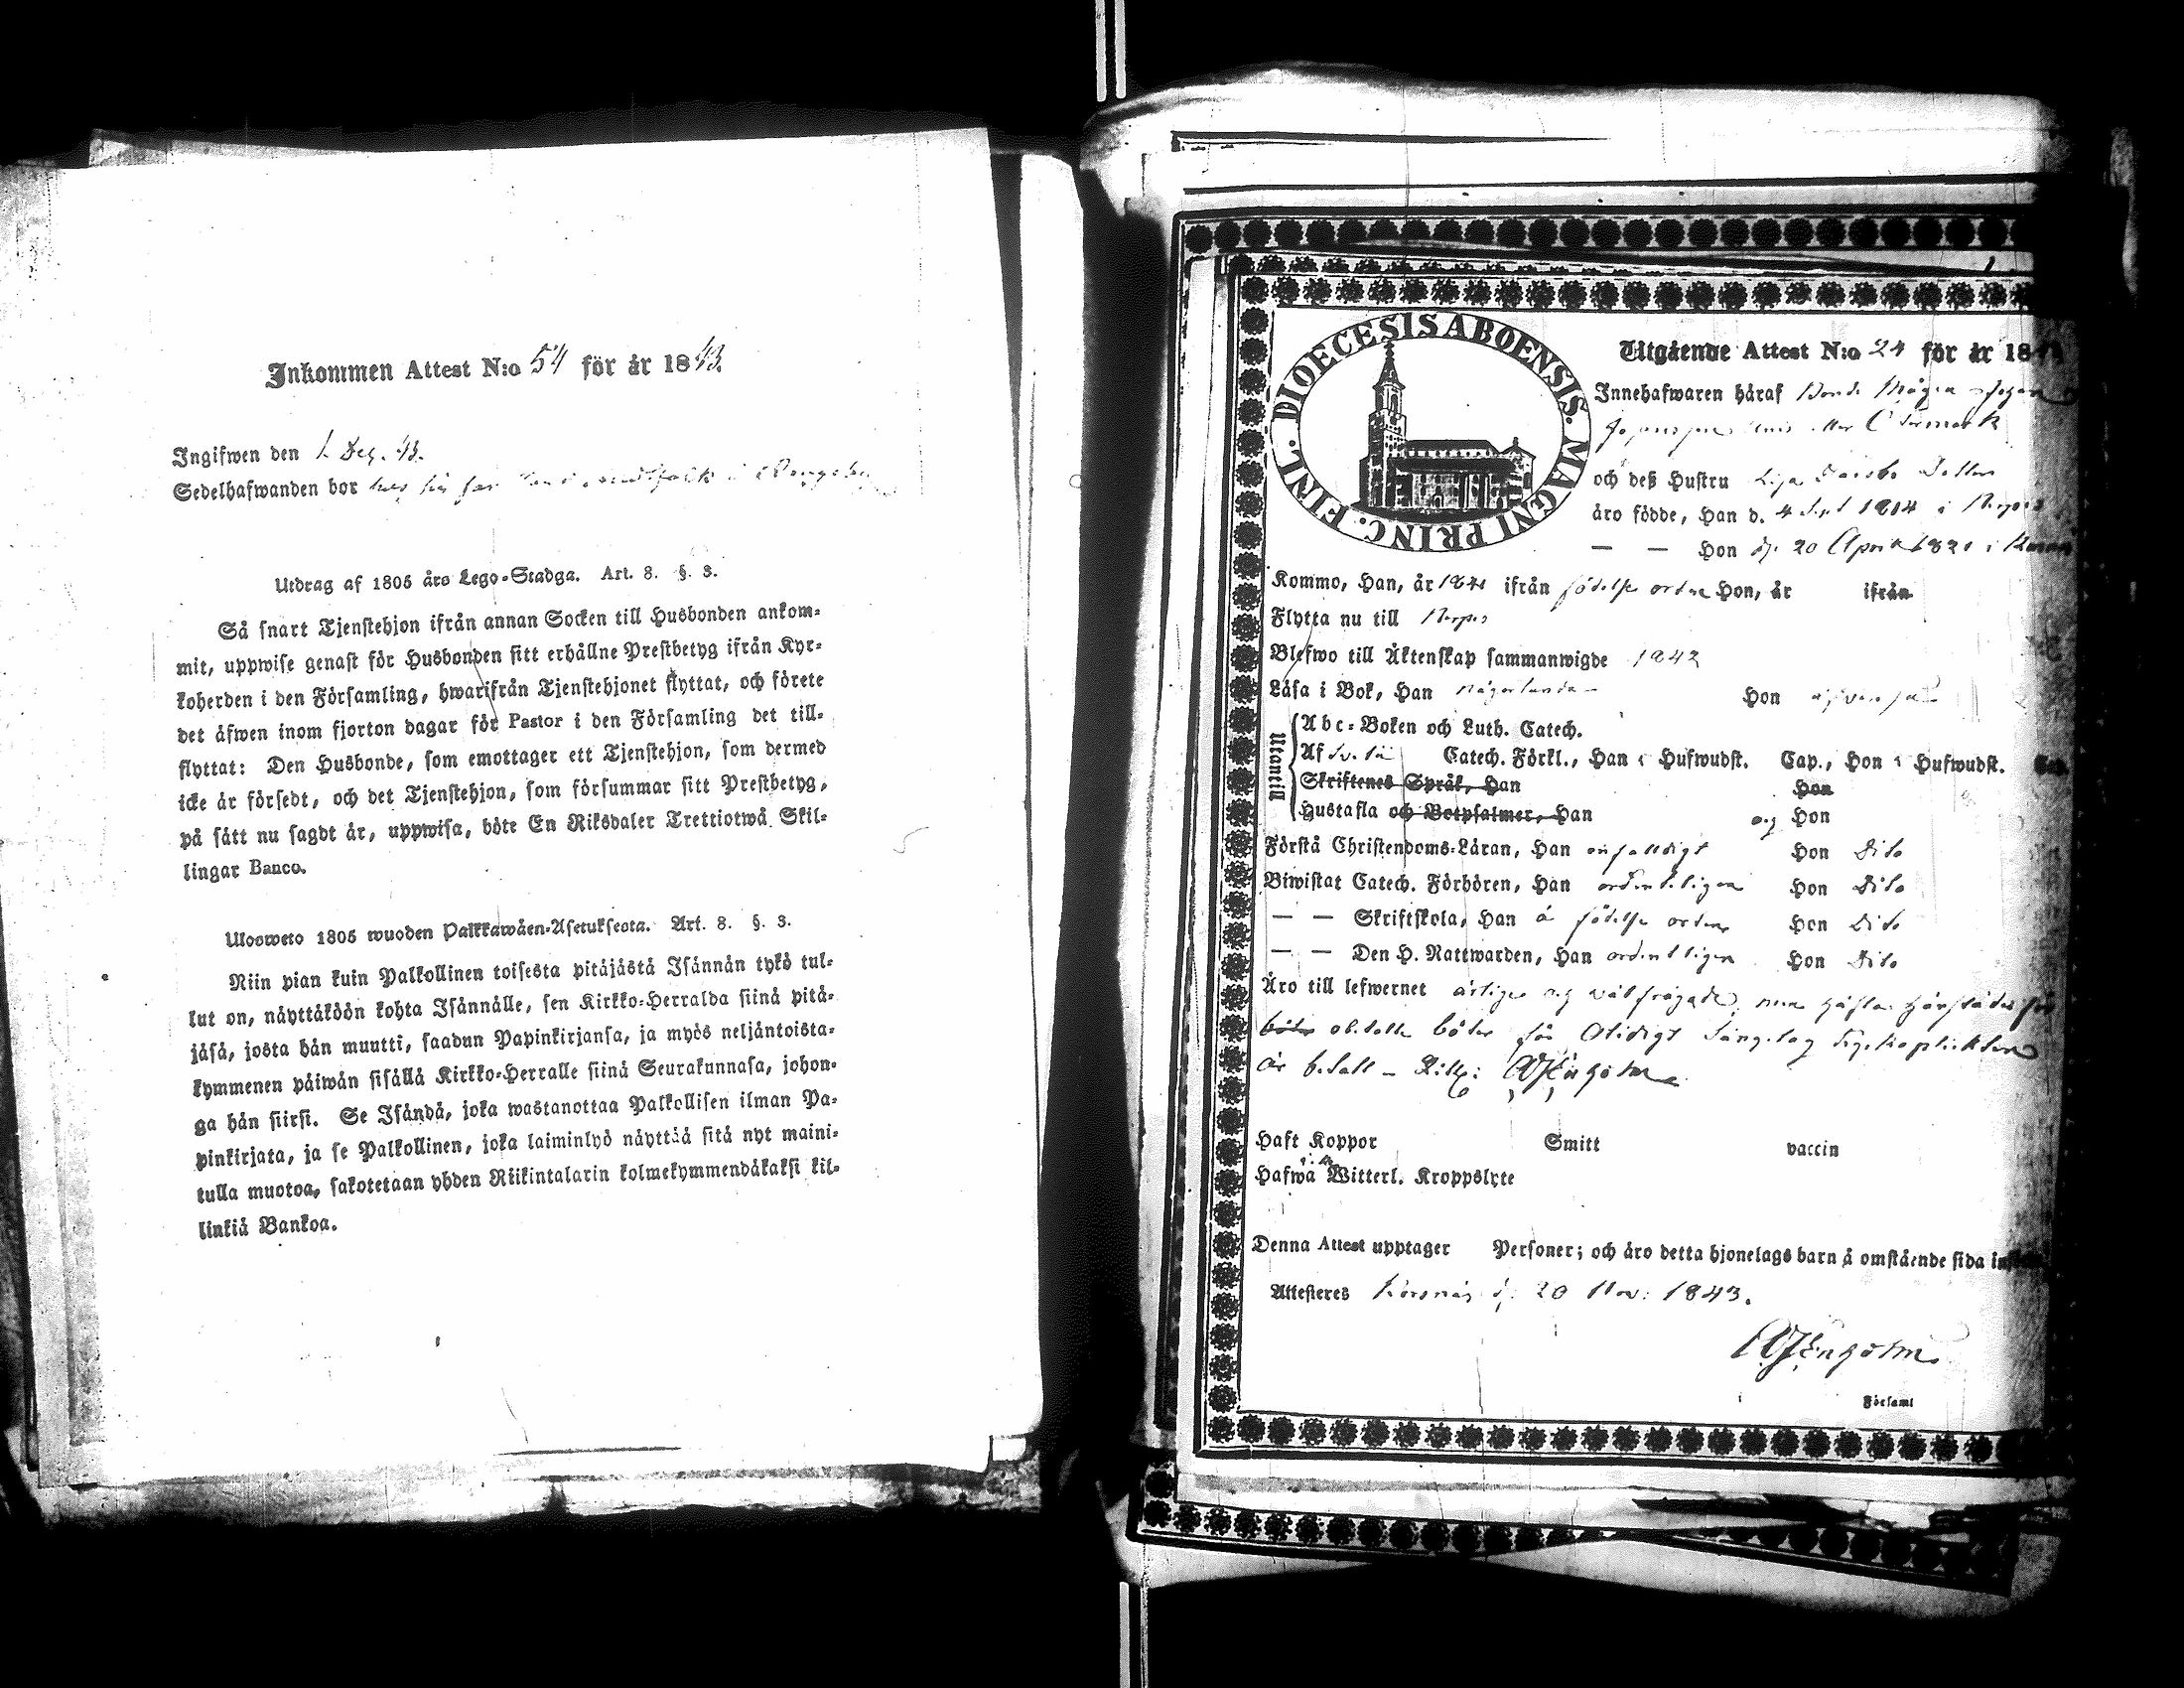 Inkommen Attest N:o 54 för år 1843.
Ingifwen den 1 Dec. 43.
Sedelhafwanden bor hos sin far
Utdrag af 1805 års Lego-Stadga. Art. 8. §. 3.
Så snart Tjenstehjon ifrån annan Socken till Husbonden ankom-
mit, uppwise genast för Husbonden sitt erhållne Prestbetyg ifrån Kyr-
koherden i den Församling, hwarifrån Tjenstehjonet flyttat, och förete
det äfwen inom fjorton dagar för Pastor i den Församling det till-
flyttat: Den Husbonde, som emottager ett Tjenstehjon, som dermed
icke är försedt, och det Tjenstehjon, som försummar sitt Prestbetyg,
på sätt nu sagdt är, uppwisa, böte En Riksdaler Trettiotwå Skil-
lingar Banco.
Ulosweto 1805 wuoden Palkkawäen-Asetuksesta. Art. 8. §. 3.
Niin pian kuin Palkollinen toisesta pitäjästä Isännän tykö tul-
lut on, näyttäköön kohta Isännälle, sen Kirkko-Herralda siinä pitä-
jäsä, josta hän muutti, saadun Papinkirjansa, ja myös neljäntoista-
kymmenen päiwän sisällä Kirkko-Herralle siinä Seurakunnasa, johon-
ga hän siirsi. Se Isändä, joka wastanottaa Palkollisen ilman Pa-
pinkirjata, ja se Palkollinen, joka laiminlyö näyttää sitä nyt maini-
tulla muotoa, sakotetaan yhden Riikintalarin kolmekymmendäkaksi kil-
linkiä Bankoa.
DIOECESIS ABOENSIS. MAGNI PRINC. FINL.
Utgående Attest N:o 24 för år 184
Innehafwaren häraf Bonde Mågen Johan
och deß Hustru Lisa Jacobs Dotter
äro födde, Han d. 4 Sept 1814 i Nerpes
— — Hon d. 20 April 1821 i
Kommo, Han, år 1841 ifrån födelse orten Hon, år ifrån
Flytta nu till Nerpes
Blefwo till Äktenskap sammanwigde 1842
Läsa i Bok, Han någorlunda Hon äfven så
Utantill
Abc-Boken och Luth. Catech.
Af Catech. Förkl., Han Hufwudst. Cap., Hon Hufwudst. Cap.
Skriftenes Språk, Han Hon
Hustafla och Botpsalmer, Han och Hon
Förstå Christendoms-Läran, Han enfaldigt Hon Dito
Biwistat Catech. Förhören, Han ordentligen Hon Dito
— — Skriftskola, Han å födelse orten Hon Dito
— — Den H. Nattwarden, Han ordentligen Hon Dito
Äro till lefwernet ärlige och välfrägade, men häfta härstädes för
böter obetalte böter för Otidigt Sängelag
är betalt
Haft Koppor Smitt vaccin
Hafwa Witterl. Kroppslyte
Denna Attest upptager Personer; och äro detta hjonelags barn å omstående sida
Attesteres Korsnäs d. 20 Nov: 1843.
Församl